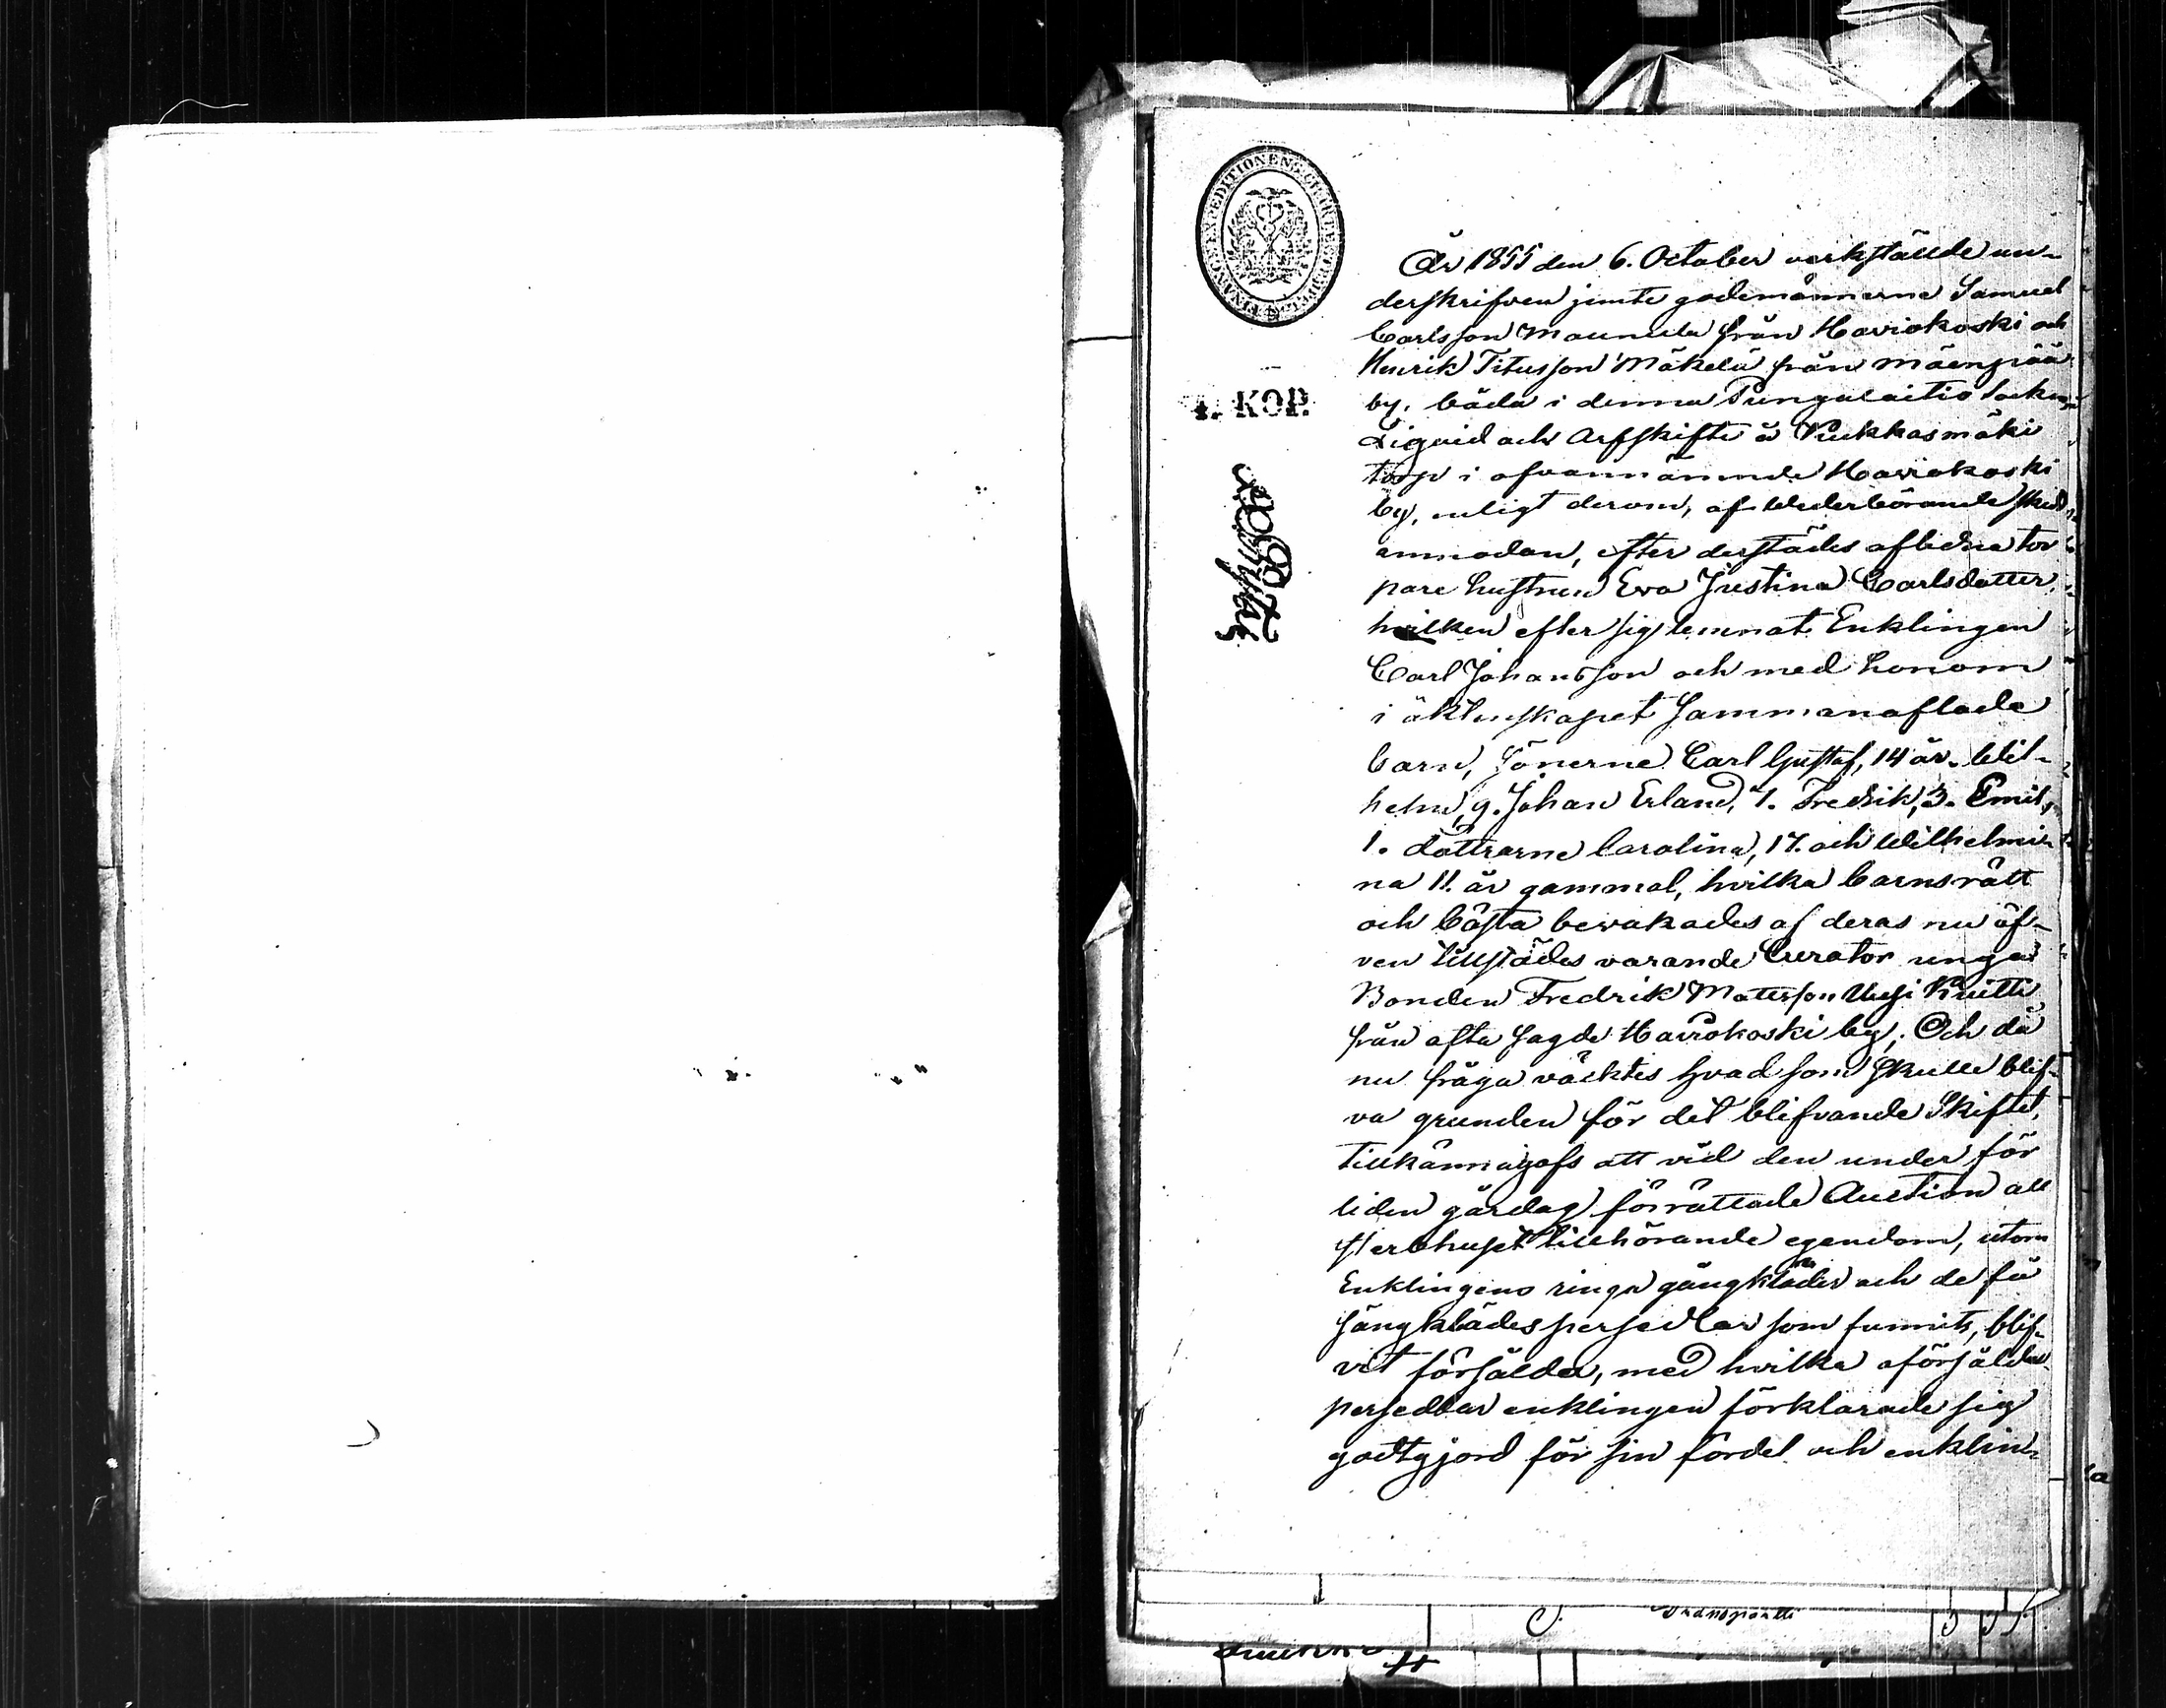 FINANCE EXPEDITIONENS CHARTÆ
4. KOP.
År 1855 den 6. October verkställde un-
derskrifven jemte godemännerne Samuel
Carlsson Maunula från Haviokoski och
Henrik Titusson Mäkelä från Mäenpää
by, båda i denna Pungalaitio Socken,
Liqvid och Arfskifte å Kukkasmäki
torp i ofvannämnde Haviokoski
by, enligt derom, af Wederbörande skedd
anmodan, efter derstädes aflidna tor
pare hustrun Eva Justina Carlsdotter,
hvilken efter sig lemnat Enklingen
Carl Johansson och med honom
i äktenskapet sammanaflade
barn, Sönerne Carl Gustaf, 14 år. Wil-
helm, 9. Johan Erland, 7. Fredrik, 3. Emil,
1. döttrarne Carolina, 17. och Wilhelmi-
na 11. år gammal, hvilka barnsrätt
och bästa bevakades af deras nu äf-
ven tillstädes varande Curator unga
Bonden Fredrik Matsson Uusi Knitti
från ofta sagde Haviokoski by. Och då
nu fråga väcktes hvad som skulle blif-
va grunden för det blifvande Skiftet,
tillkännagafs att vid den under för
liden gårdag förrättade Auction all
sterbhuset tillhörande egendom, utom
Enklingens ringa gångkläder och de få
sängklädes persedlar som funnits, blif-
vit försålda, med hvilka oförsålda
persedlar enklingen förklarade sig
godtgjord för sin fördel och enklin-
Transportti